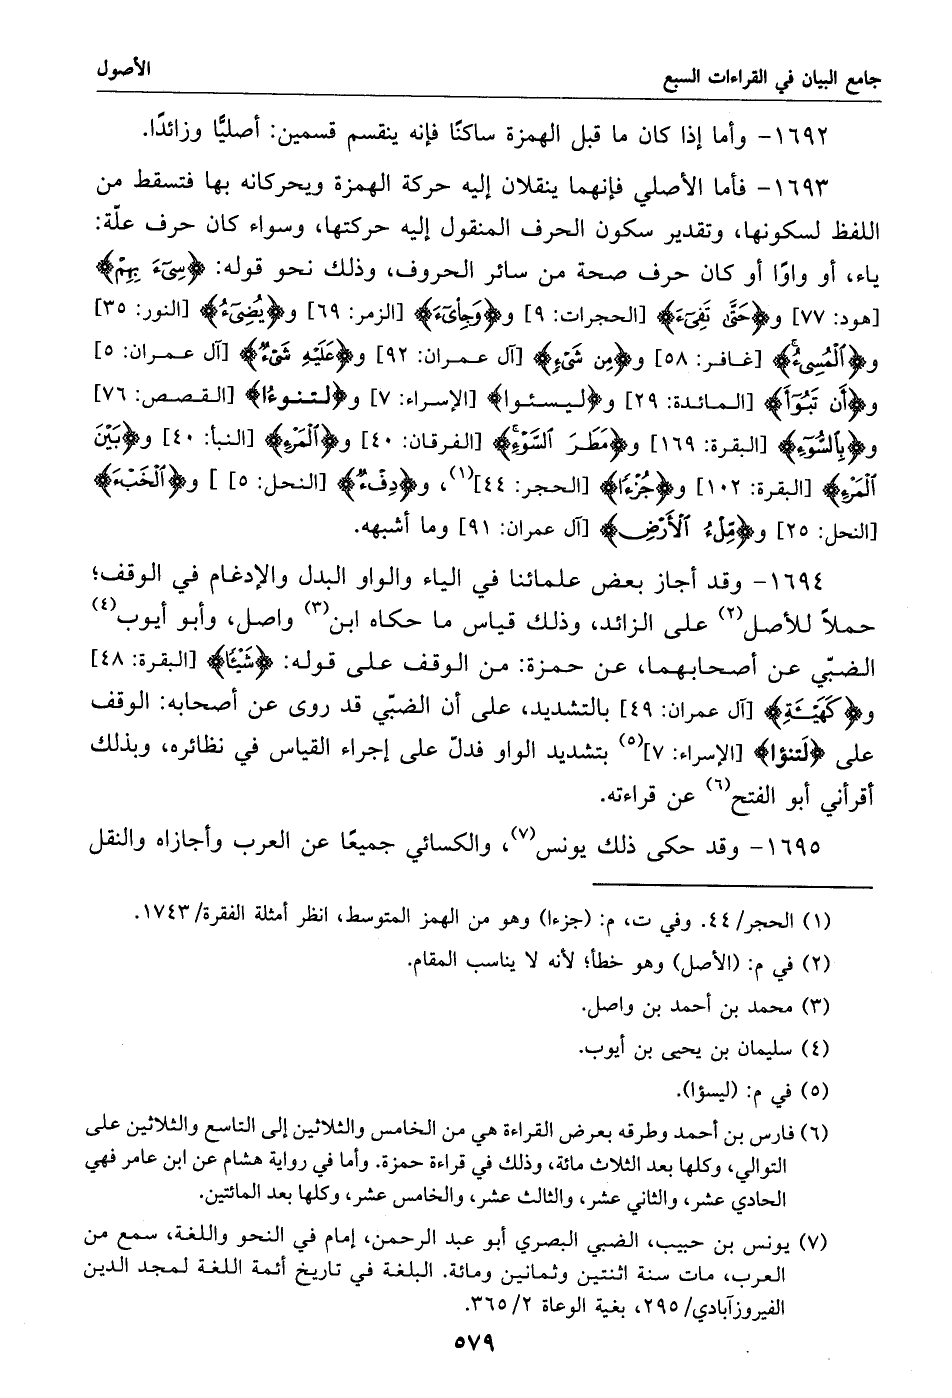 جامع البيان في القراءات السبع
الأصول
١٦٩٢- وأما إذا كان ما قبل الهمزة ساكنًا فإنه ينقسم قسمين: أصليًّا وزائدًا.
١٦٩٣- فأما الأصلي فإنهما ينقلان إليه حركة الهمزة ويحركانه بها فتسقط من
اللفظ لسكونها، وتقدير سكون الحرف المنقول إليه حركتها، وسواء كان حرف علّة:
ياء، أو واوًا أو كان حرف صحة من سائر الحروف، وذلك نحو قوله: ﴿سِيٓءَ بِهِمْ﴾
[هود: ٧٧] و﴿حَتَّىٰ تَفِيٓءَ﴾ [الحجرات: ٩] و﴿وَجِاْيٓءَ﴾ [الزمر: ٦٩] و﴿يُضِيٓءُ﴾ [النور: ٣٥]
و﴿ٱلْمُسِيٓءُ﴾ [غافر: ٥٨] و﴿مِن شَيْءٍ﴾ [آل عمران: ٩٢] و﴿عَلَيْهِ شَيْءٌ﴾ [آل عمران: ٥]
و﴿أَن تَبُوٓأَ﴾ [المائدة: ٢٩] و﴿ليسئوا﴾ [الإسراء: ٧] و﴿لتنوءُا﴾ [القصص: ٧٦]
و﴿بِٱلسُّوٓءِ﴾ [البقرة: ١٦٩] و﴿مَطَرَ ٱلسَّوْءِ﴾ [الفرقان: ٤٠] و﴿ٱلْمَرْءِ﴾ [النبأ: ٤٠] و﴿بَيْنَ
ٱلْمَرْءِ﴾ [البقرة: ١٠٢] و﴿جُزْءًا﴾ [الحجر: ٤٤](١)، و﴿دِفْءٌ﴾ [النحل: ٥] [ و﴿ٱلْخَبْءَ﴾
[النحل: ٢٥] و﴿مِّلْءُ ٱلْأَرْضِ﴾ [آل عمران: ٩١] وما أشبهه.
١٦٩٤- وقد أجاز بعض علمائنا في الياء والواو البدل والإدغام في الوقف؛
حملاً للأصل(٢) على الزائد، وذلك قياس ما حكاه ابن(٣) واصل، وأبو أيوب(٤)
الضبّي عن أصحابهما، عن حمزة: من الوقف على قوله: ﴿شَيْـًٔا﴾ [البقرة: ٤٨]
و﴿كَهَيْـَٔةِ﴾ [آل عمران: ٤٩] بالتشديد، على أن الضبّي قد روى عن أصحابه: الوقف
على ﴿لَتنؤا﴾ [الإسراء: ٧](٥) بتشديد الواو فدلّ على إجراء القياس في نظائره، وبذلك
أقرأني أبو الفتح(٦) عن قراءته.
١٦٩٥- وقد حكى ذلك يونس(٧)، والكسائي جميعًا عن العرب وأجازاه والنقل
(١) الحجر/ ٤٤. وفي ت، م: (جزءا) وهو من الهمز المتوسط، انظر أمثلة الفقرة/ ١٧٤٣.
(٢) في م: (الأصل) وهو خطأ؛ لأنه لا يناسب المقام.
(٣) محمد بن أحمد بن واصل.
(٤) سليمان بن يحيى بن أيوب.
(٥) في م: (ليسؤا).
(٦) فارس بن أحمد وطرقه بعرض القراءة هي من الخامس والثلاثين إلى التاسع والثلاثين على
التوالي، وكلها بعد الثلاث مائة، وذلك في قراءة حمزة. وأما في رواية هشام عن ابن عامر فهي
الحادي عشر، والثاني عشر، والثالث عشر، والخامس عشر، وكلها بعد المائتين.
(٧) يونس بن حبيب، الضبي البصري أبو عبد الرحمن، إمام في النحو واللغة، سمع من
العرب، مات سنة اثنتين وثمانين ومائة. البلغة في تاريخ أئمة اللغة لمجد الدين
الفيروزآبادي/ ٢٩٥، بغية الوعاة ٢/ ٣٦٥.
٥٧٩